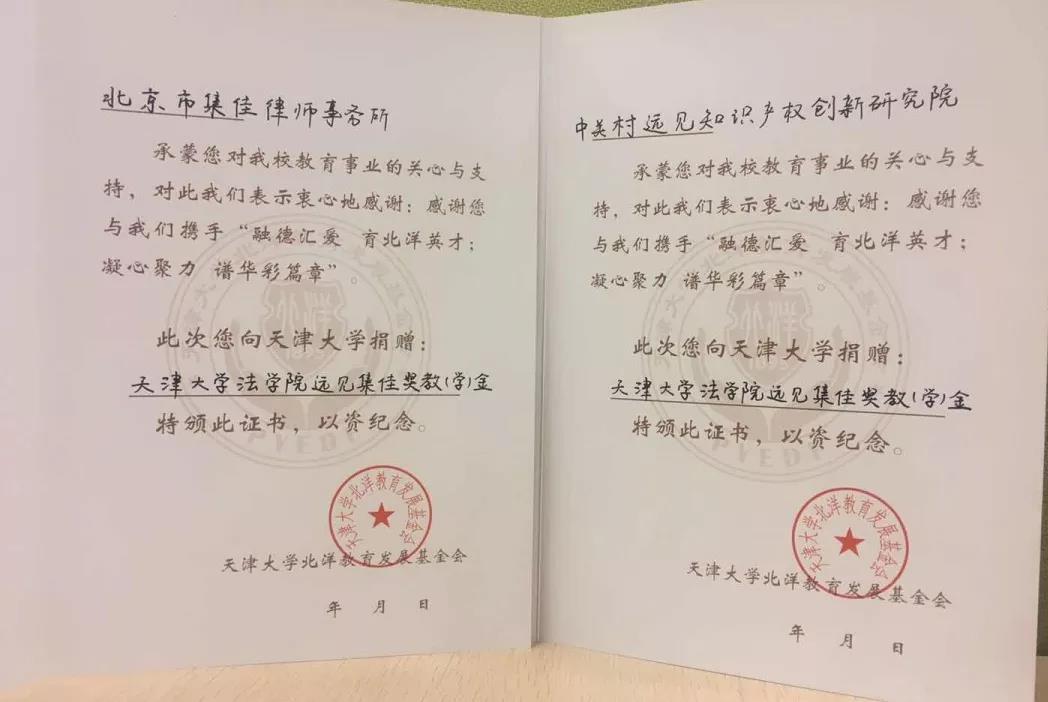 北京市集佳律师事务所
承蒙您对我校教育事业的关心与支
持，对此我们表示衷心地感谢：感谢您
与我们携手“融德汇爱 育北洋英才；
凝心聚力 谱华彩篇章”。
此次您向天津大学捐赠：
天津大学法学院远见集佳奖教(学)金
特颁此证书，以资纪念。
天津大学北洋教育发展基金会
天津大学北洋教育发展基金会
年 月 日
中关村远见知识产权创新研究院
承蒙您对我校教育事业的关心与支
持，对此我们表示衷心地感谢：感谢您
与我们携手“融德汇爱 育北洋英才；
凝心聚力 谱华彩篇章”。
此次您向天津大学捐赠：
天津大学法学院远见集佳奖教(学)金
特颁此证书，以资纪念。
天津大学北洋教育发展基金会
天津大学北洋教育发展基金会
年 月 日